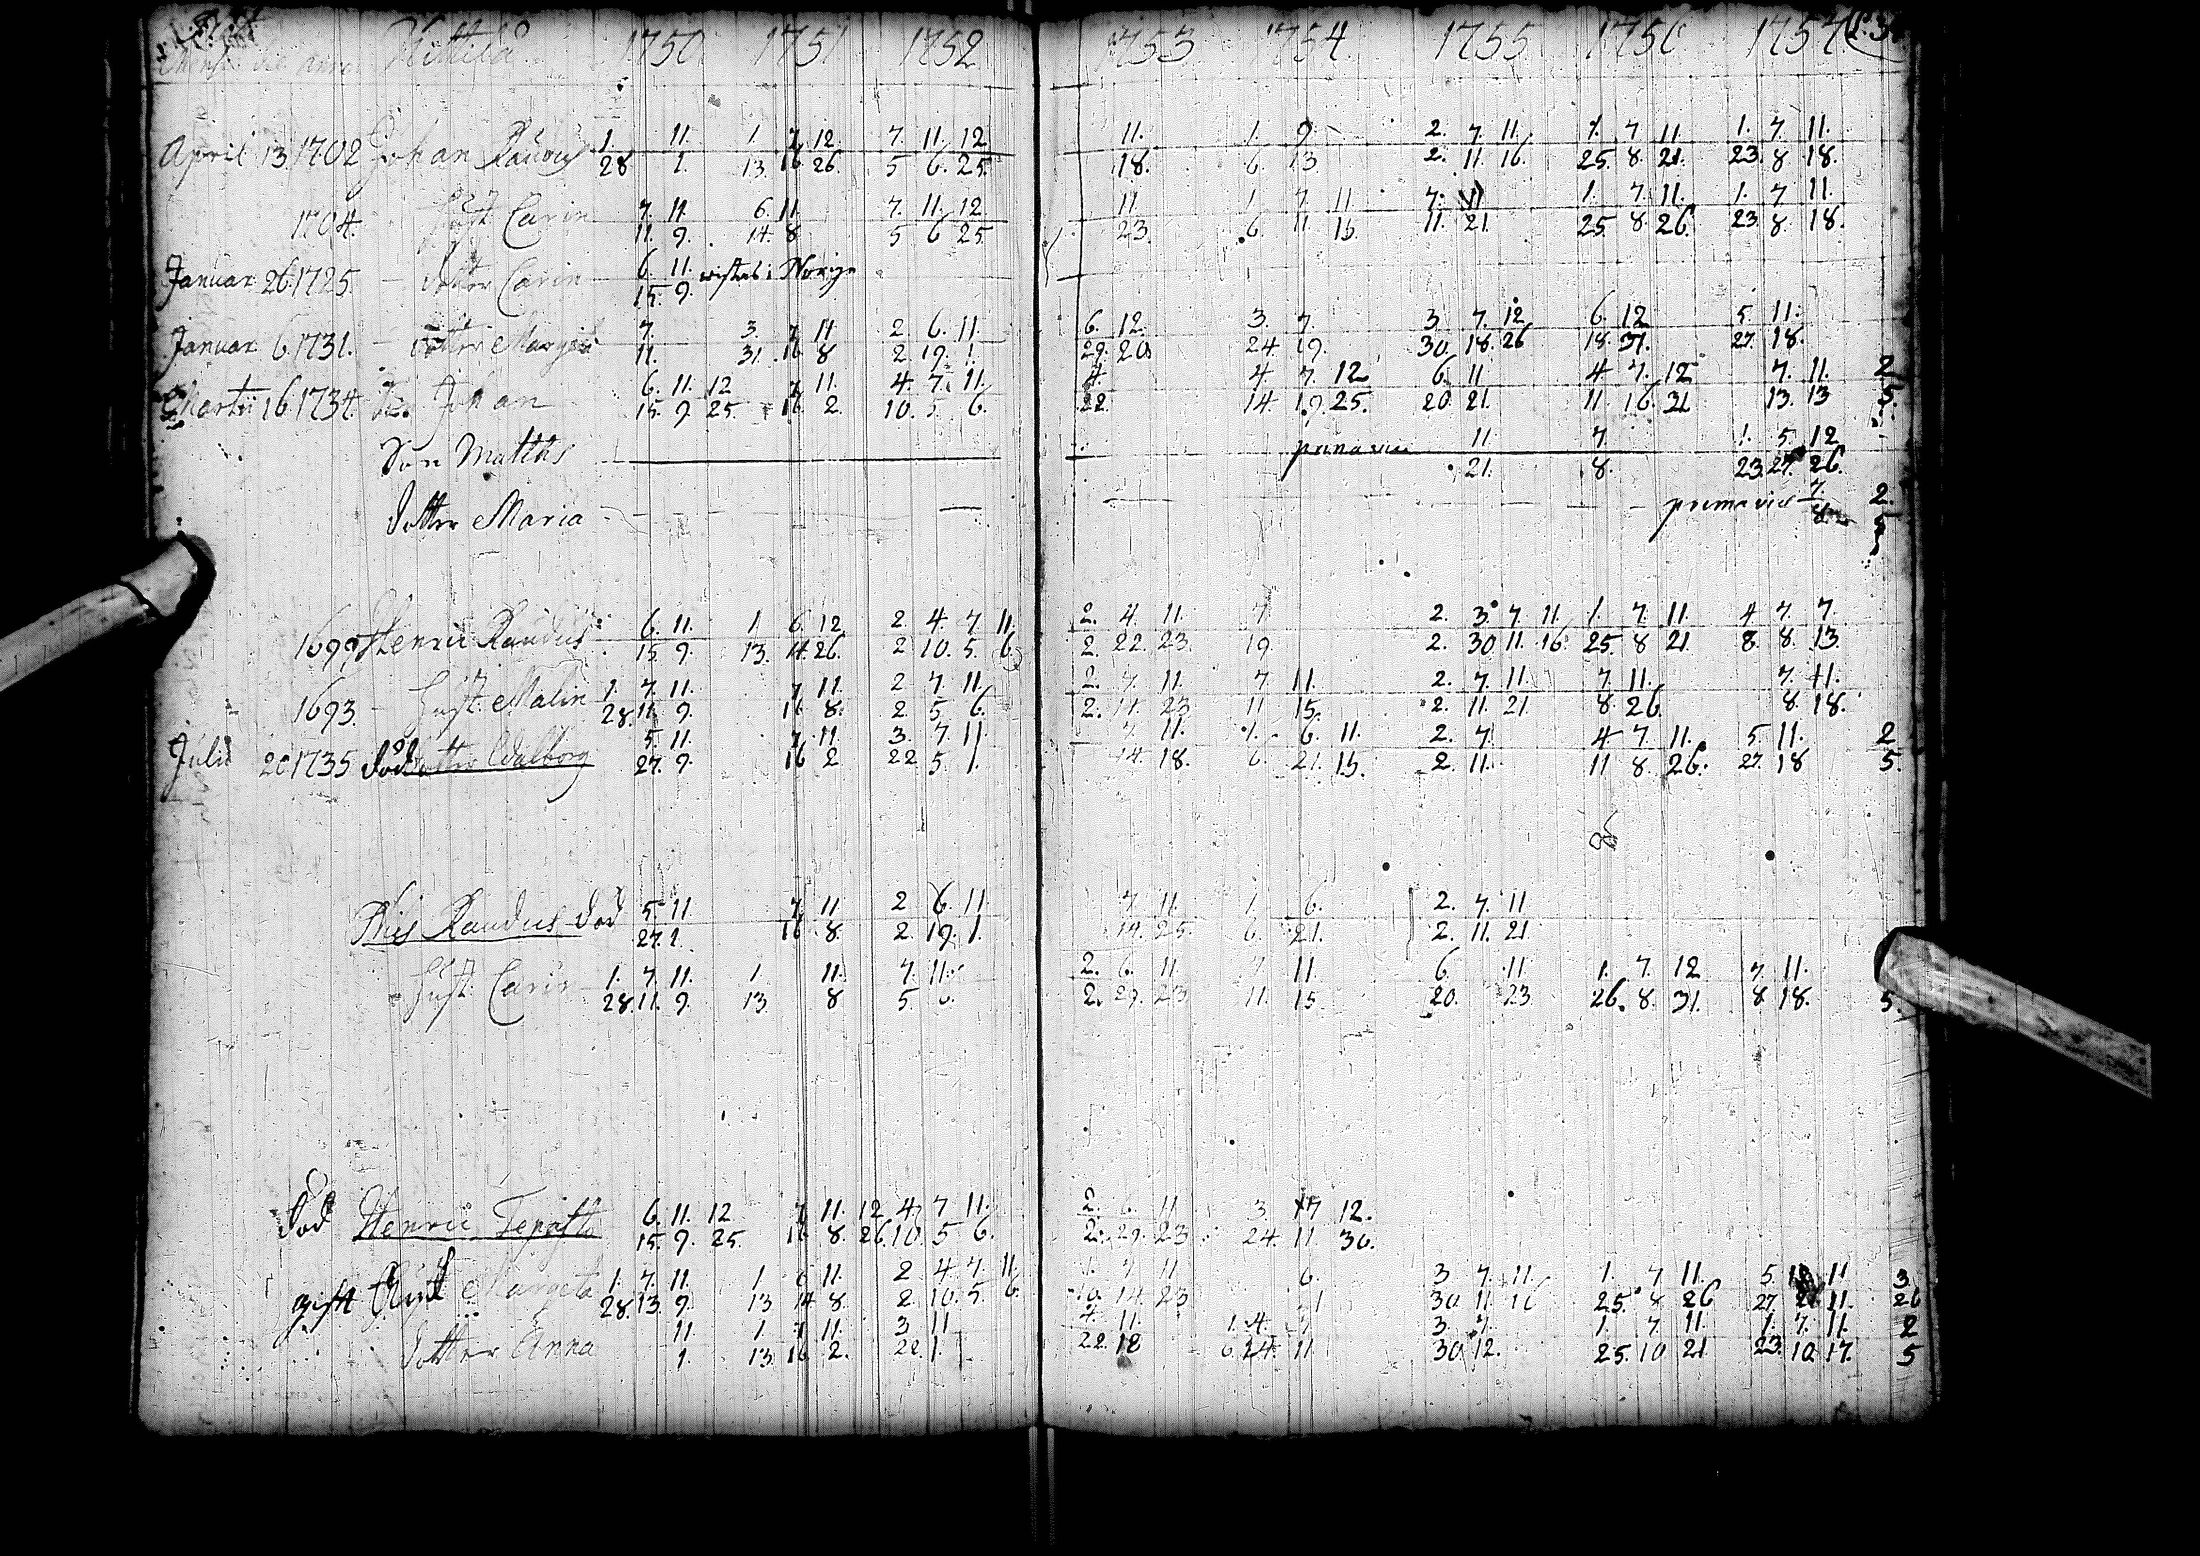 Mens. die anno Kittilä 1750 1751 1752 1753 1754 1755 1756 1757
1. 11. 1. 7. 12. 7. 11. 12 11. 1. 9. 2. 7. 11. 1. 7. 11. 1. 7. 11.
April 13 1702 Johan 28 1. 13. 16 26. 5 6. 25. 18. 6. 13. 2. 11. 16. 25. 8. 21. 23. 8. 18.
7. 11 6. 11. 7. 11. 12 11. 1. 7. 11 7. 11 1. 7. 11. 1. 7 11.
1704. Hust. Carin 11. 9. 14. 8 5 6 25. 23. 6. 11. 15. 11. 21. 25. 8. 26. 23. 8. 18.
6. 11. wistas i Norige
Januar 26. 1725. dotter Carin 15. 9.
7. 3. 7 11 2 6. 11. 6. 12. 3. 7. 3 7. 12 6. 12 5 11.
Januar 6. 1731. dotter Margeta 11. 31. 16 8 2 19. 1. 29. 20 24. 19. 30. 18. 26 18. 31. 27. 18.
6. 11. 12 7 11. 4. 7. 11. 4. 4. 7. 12 6. 11 4 7. 12 7. 11. 2
Martii 16. 1734. Johan 15. 9. 25. 16. 2. 10. 5. 6. 22. 14. 19. 25. 20. 21. 11. 16. 31 13. 13 5.
11 7. 1. 5. 12
Son Matths prima vice 21. 8. 23. 27. 26.
7.
dotter Maria prima vice 8. 2. 5
6. 11. 1. 6. 12 2 4. 7 11. 2. 4. 11. 7 2. 3. 7 11 1. 7. 11. 4 7. 7.
1699 Henric Raudus 15. 9. 13. 14. 26. 2 10. 5. 6. 2. 22. 23. 19. 2. 30. 11. 16. 25. 8 21. 8. 8. 13.
1. 7. 11. 7 11. 2 7. 11. 2. 7. 11. 7 11. 2. 7. 11. 7. 11. 7. 11.
1693. Hust. Malin 28. 11. 9. 16 8. 2. 5 6. 2. 11. 23 11 15. 2. 11. 21. 8. 26. 8. 18.
5. 11. 7. 11. 3. 7 11. 7. 11. 1. 6. 11. 2. 7. 4 7. 11. 5. 11. 2
Julii 20 1735 död dotter Walborg 27. 9. 16 2. 22 5 1. 14. 18. 6. 21. 15. 2. 11. 11 8. 26. 27. 18 5.
5. 11. 7. 11 2 6. 11. 7. 11. 1. 6. 2. 7. 11
Nils Raudus död 27. 1. 16. 8. 2. 19. 1. 14. 25. 6. 21. 2. 11. 21
1. 7. 11. 1. 11. 7. 11. 2. 6. 11. 7 11 6. 11. 1. 7. 12 7. 11.
Hust. Carin 28. 11. 9. 13. 8 5 6. 2. 29. 23 11. 15. 20. 23. 26. 8. 31. 8 18. 5.
6. 11. 12 7 11. 12 4. 7 11. 2. 6. 11 3. 17 12.
död Henric 15. 9. 25. 16 8. 26. 10. 5 6. 2. 29. 23 24. 11 30.
1. 7. 11. 1. 6 11. 2. 4. 7. 11. 7. 11 6. 3 7. 11. 1. 7 11. 5. 11 3.
gift Margeta 28. 13. 9. 13 14 8. 2. 10. 5. 6. 10. 14. 23 21 30. 11 16 25. 8 26 27. 11. 26
11. 1. 7 11. 3 11 4. 11. 1. 4. 7 3. 7. 1. 7. 11. 1. 7. 11. 2
dotter Anna 1. 13. 16 2. 22. 1. 22. 18 6. 24. 11 30. 12. 25. 10 21 23. 10 17. 5